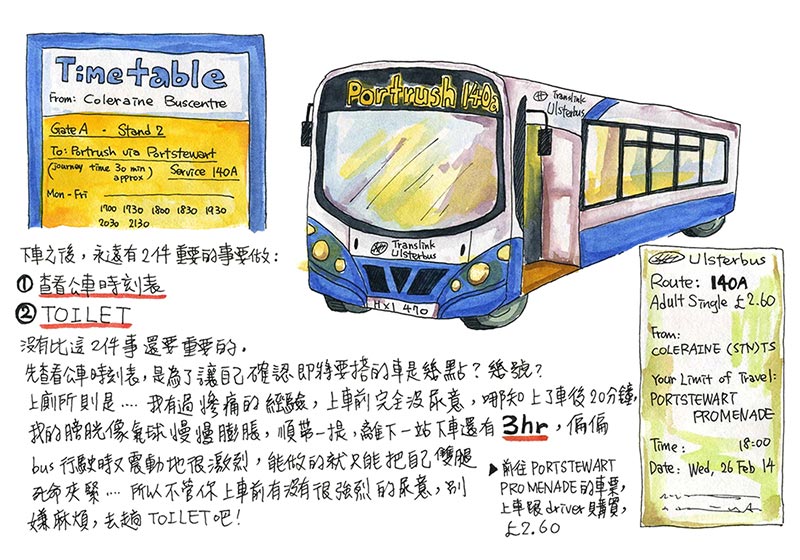 Timetable
From: Coleraine Buscentre
Gate A - Stand 2
To: Portrush via Portstewart
(journey time 30 min approx) Service 140A
Mon - Fri
1700 1730 1800 1830 1930
2030 2130
Portrush 140a
Translink
Ulsterbus
Translink
Ulsterbus
HXI 470
下車之後，永遠有2件重要的事要做：
① 查看公車時刻表
② TOILET
沒有比這2件事還要重要的。
先查看公車時刻表，是為了讓自己確認即將要搭的車是幾點？幾號？
上廁所則是‥‥我有過慘痛的經驗，上車前完全沒尿意，哪知上了車後20分鐘，
我的膀胱像氣球慢慢膨脹，順帶一提，離下一站下車還有3hr，偏偏
bus行駛時又震動地很激烈，能做的就只能把自己雙腿
死命夾緊‥‥所以不管你上車前有沒有很強烈的尿意，別
嫌麻煩，去趟TOILET吧！
▶前往PORTSTEWART
PROMENADE的車票，
上車跟driver購買，
£2.60
Ulsterbus
Route: 140A
Adult Single £2.60
From:
COLERAINE (STN)TS
Your Limit of Travel:
PORTSTEWART
PROMENADE
Time: 18:00
Date: Wed, 26 Feb 14